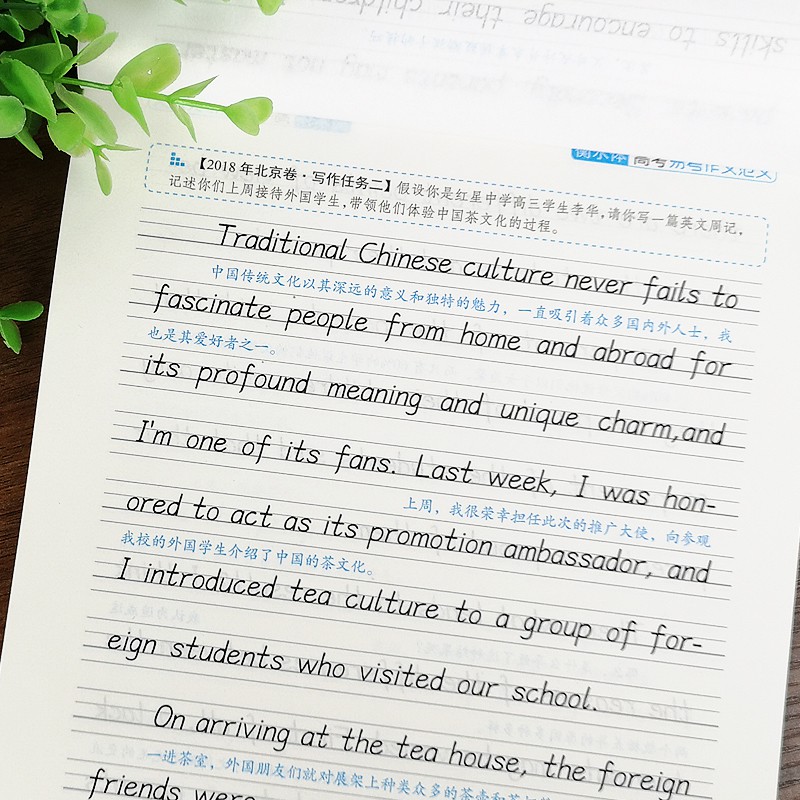 skills to encourage their children
衡水体 高考满分作文范文
【2018年北京卷·写作任务二】假设你是红星中学高三学生李华,请你写一篇英文周记,
记述你们上周接待外国学生,带领他们体验中国茶文化的过程。
Traditional Chinese culture never fails to
中国传统文化以其深远的意义和独特的魅力,一直吸引着众多国内外人士,我
fascinate people from home and abroad for
也是其爱好者之一。
its profound meaning and unique charm,and
I'm one of its fans. Last week, I was hon-
上周,我很荣幸担任此次的推广大使,向参观
ored to act as its promotion ambassador, and
我校的外国学生介绍了中国的茶文化。
I introduced tea culture to a group of for-
eign students who visited our school.
On arriving at the tea house, the foreign
一进茶室,外国朋友们就对展架上种类众多的茶壶和茶
friends were